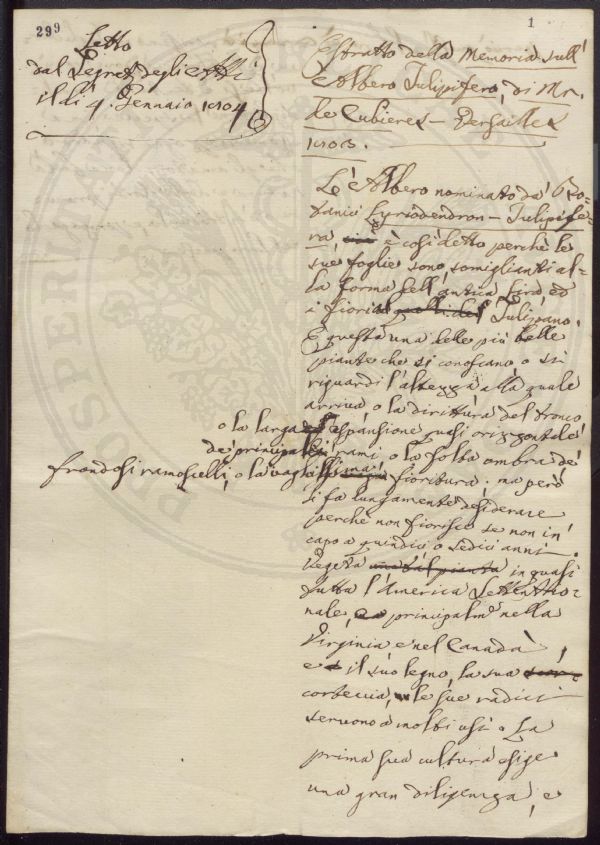 299
1
Letto
dal Segret. degli Atti
il dì 4. Gennaio 1804
Estratto della Memoria sull'
Albero Tulipifero, di Mr.
de Cubieres – Versailles
1803.
L'Albero nominato da' Bo=
tanici Lyriodendron – Tulipife=
ra, è così detto perchè le
sue foglie sono somiglianti al=
la forma dell'antica lira, ed
i fiori al Tulipano.
È questa una delle più belle
piante che si conoscano o si
riguardi l'altezza alla quale
arriva o la dirittura del tronco
o la larga espansione quasi orizzontale
de' principali rami o la folta ombra de'
frondosi ramoscelli, o la vaghissima fioritura: ma però
si fa lungamente desiderare
perchè non fiorisce se non in
capo a quindici o sedici anni.
Vegeta una tal pianta in quasi
tutta l'America Settentrio=
nale, principalm.e nella
Virginia e nel Canadà,
e il suo legno, la sua
corteccia, le sue radici
servono a molti usi. La
prima sua cultura esige
una gran diligenza, e
PROSIERIA